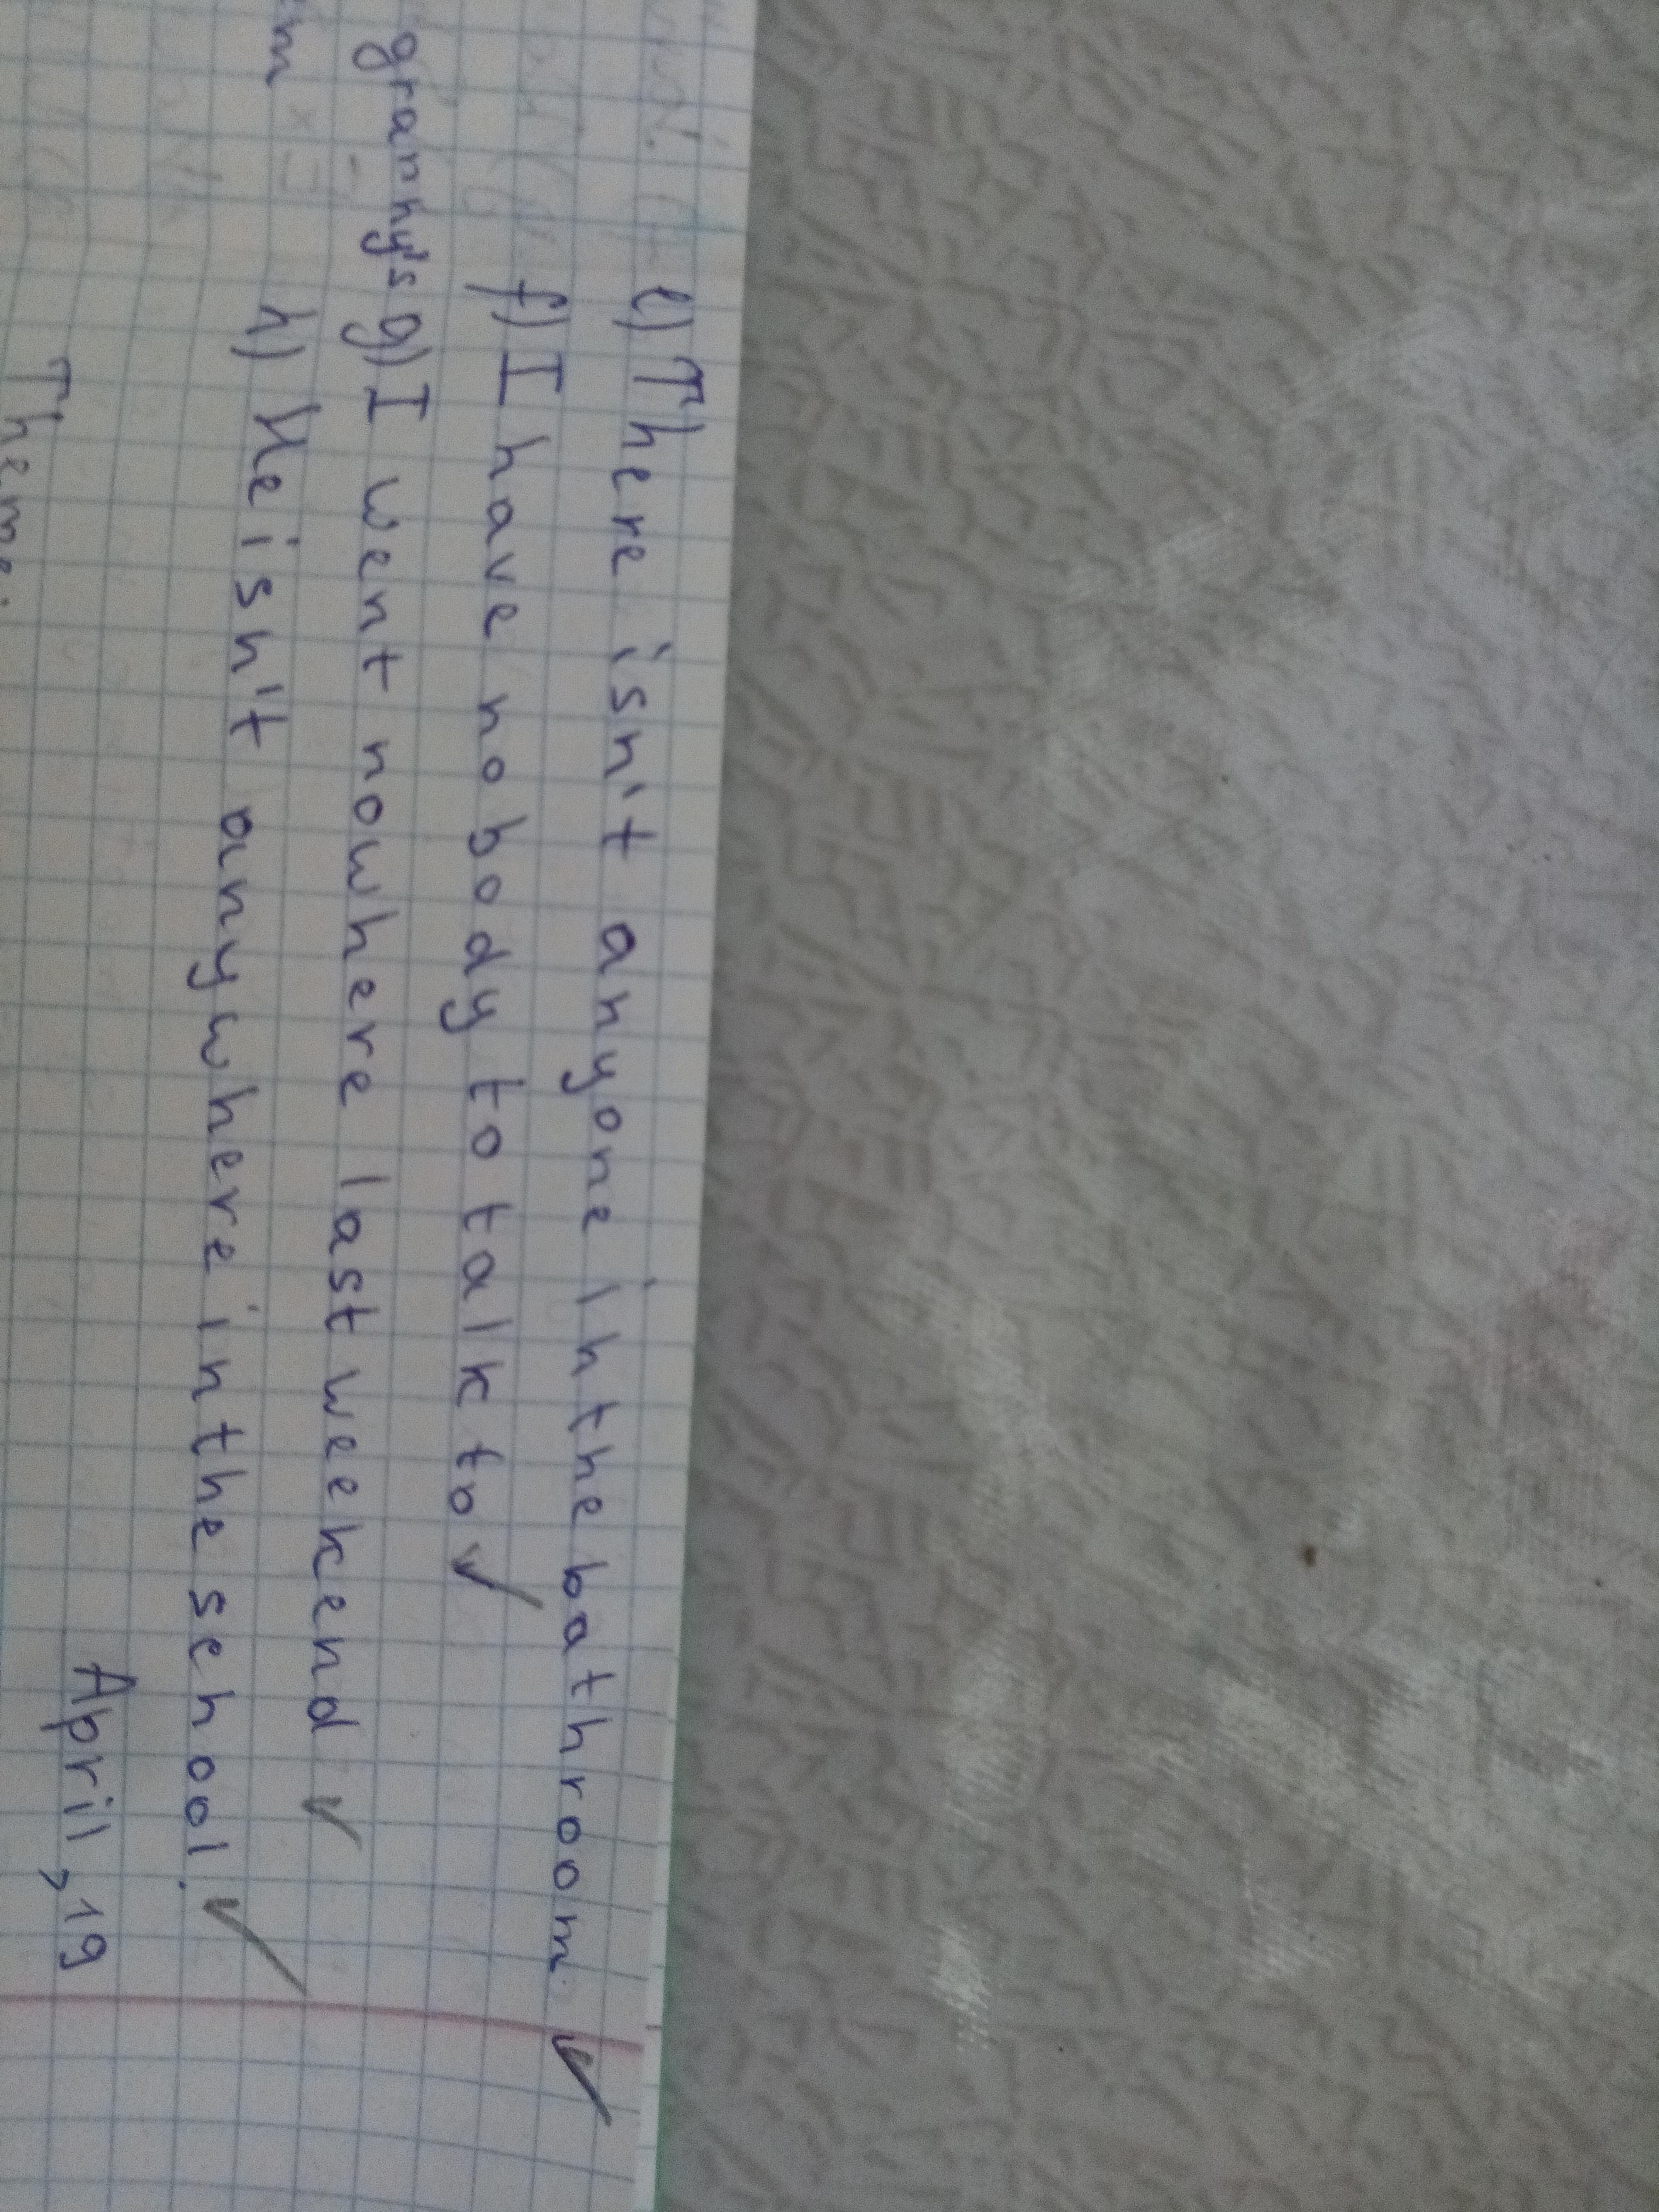 e) There isn't anyone in the bathroom
f) I have nobody to talk to
granny's g) I went nowhere last weekend
h) He isn't anywhere in the school.
April, 19
Theme: